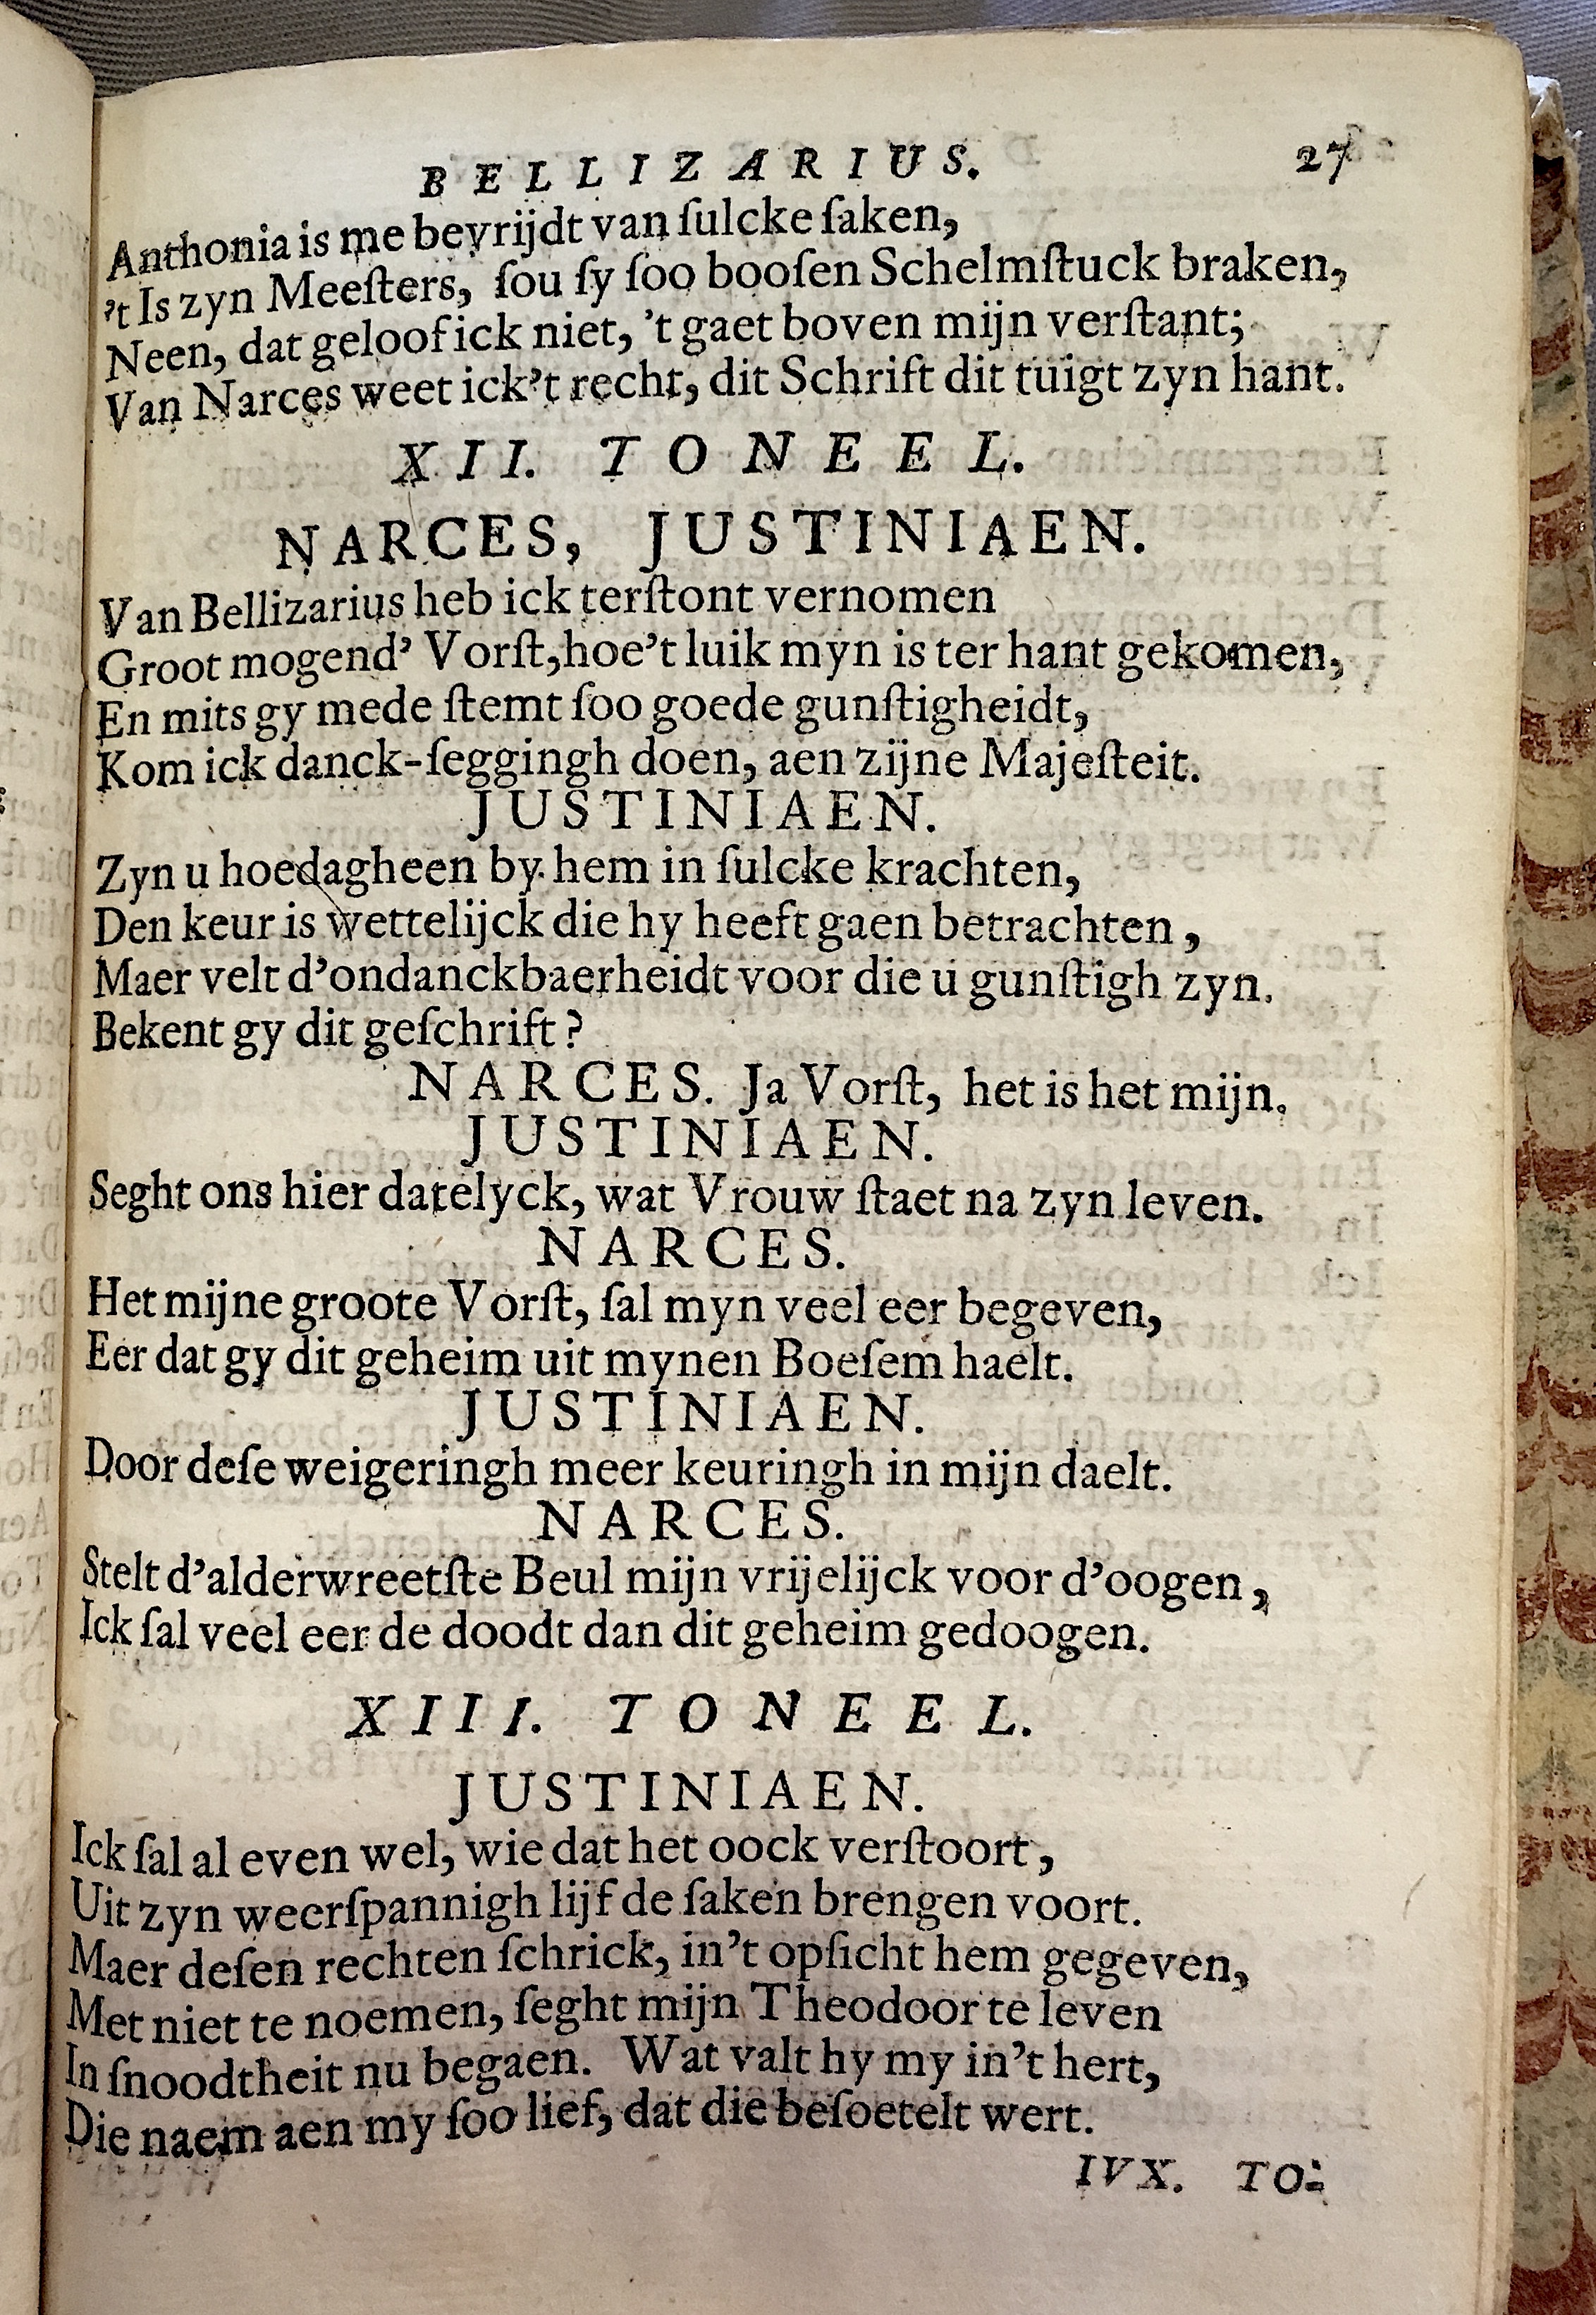 BELLIZARIUS. 27
Anthonia is me bevrijdt van ſulcke ſaken,
't Is zyn Meeſters, ſou ſy ſoo booſen Schelmſtuck braken,
Neen, dat geloof ick niet, 't gaet boven mijn verſtant;
Van Narces weet ick't recht, dit Schrift dit tuigt zyn hant.
XII. TONEEL.
NARCES, JUSTINIAEN.
Van Bellizarius heb ick terſtont vernomen
Groot mogend' Vorſt, hoe't luik myn is ter hant gekomen,
En mits gy mede ſtemt ſoo goede gunſtigheidt,
Kom ick danck-ſeggingh doen, aen zijne Majeſteit.
JUSTINIAEN.
Zyn u hoedagheen by hem in ſulcke krachten,
Den keur is wettelijck die hy heeft gaen betrachten,
Maer velt d'ondanckbaerheidt voor die u gunſtigh zyn.
Bekent gy dit geſchrift?
NARCES. Ja Vorſt, het is het mijn.
JUSTINIAEN.
Seght ons hier datelyck, wat Vrouw ſtaet na zyn leven.
NARCES.
Het mijne groote Vorſt, ſal myn veel eer begeven,
Eer dat gy dit geheim uit mynen Boeſem haelt.
JUSTINIAEN.
Door deſe weigeringh meer keuringh in mijn daelt.
NARCES.
Stelt d'alderwreetſte Beul mijn vrijelijck voor d'oogen,
Ick ſal veel eer de doodt dan dit geheim gedoogen.
XIII. TONEEL.
JUSTINIAEN.
Ick ſal al even wel, wie dat het oock verſtoort,
Uit zyn weerſpannigh lijf de ſaken brengen voort.
Maer deſen rechten ſchrick, in't opſicht hem gegeven,
Met niet te noemen, ſeght mijn Theodoor te leven
In ſnoodtheit nu begaen. Wat valt hy my in't hert,
Die naem aen my ſoo lief, dat die beſoetelt wert.
IVX. TO-